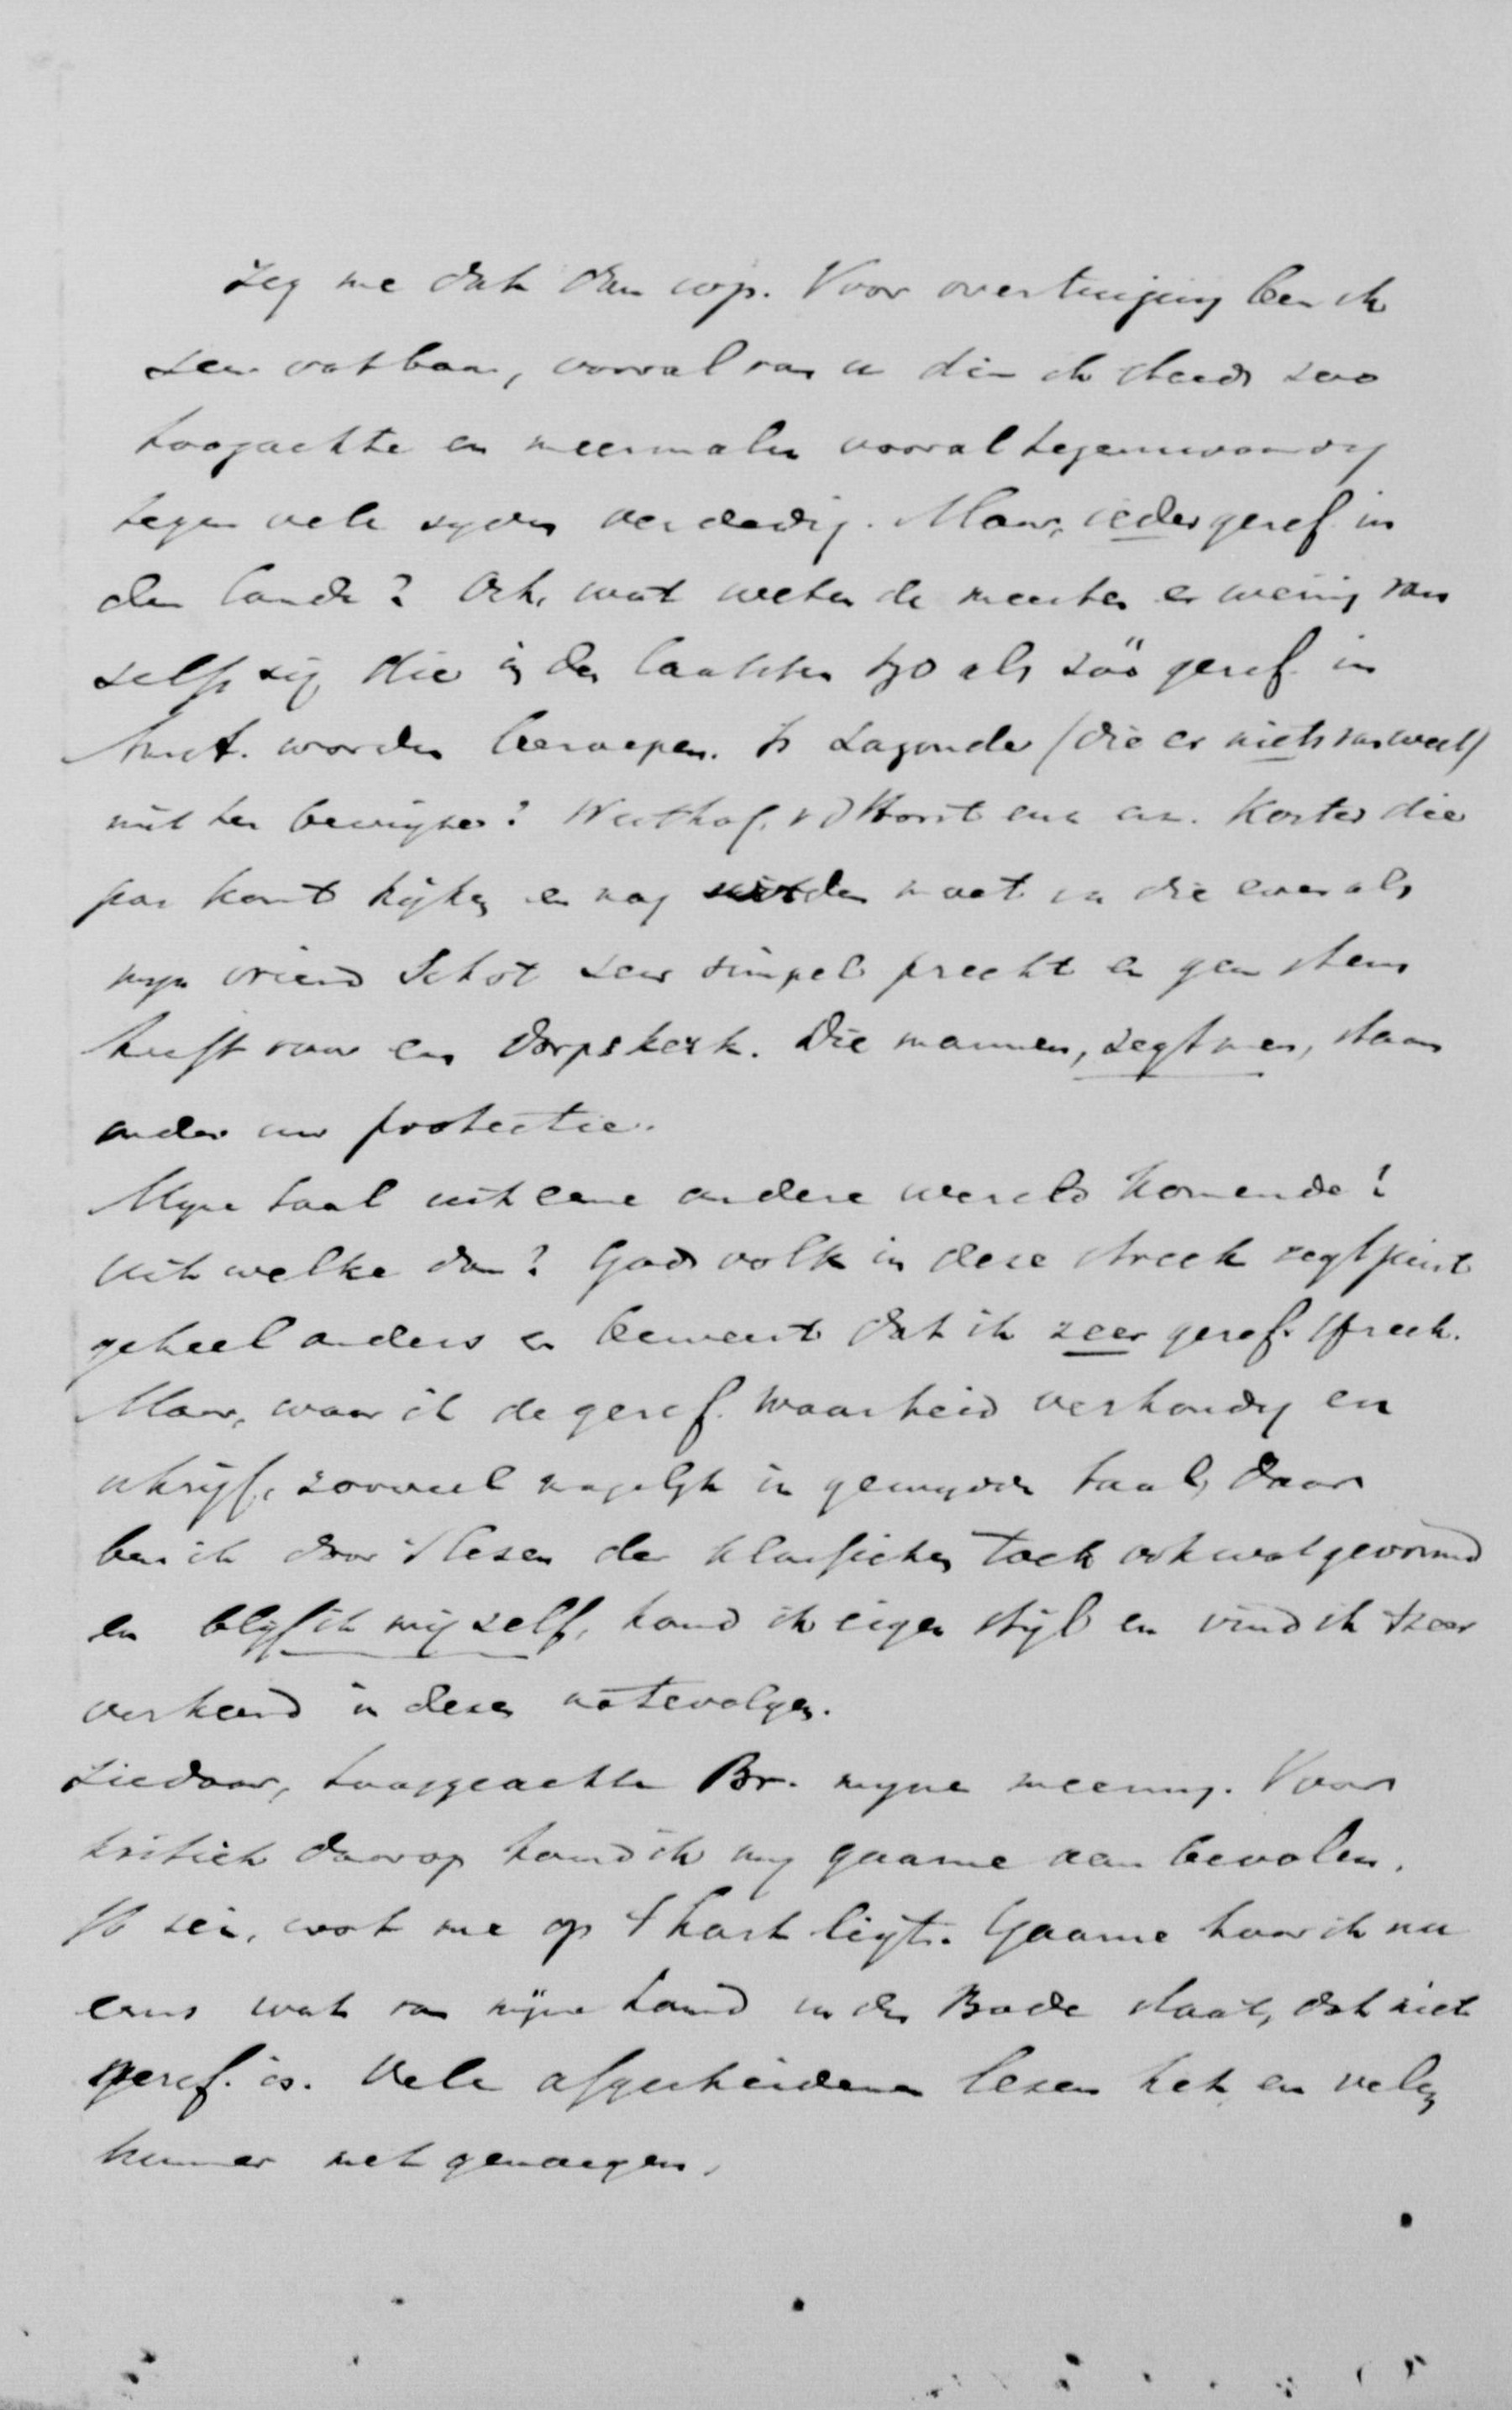 Zeg me dat dan erop. Voor overtuiging ben ik
zeer vatbaar, vooral van u die ik steeds zoo
hoogachtte en meermalen vooral tegenwoordig
tegen vele zyden verdedig. Maar, ieder geref. in
den lande? Och, wat weten de meesten er weinig van
zelfs zij die in den laatsten tyd als zóó geref. in
Amst. worden beroepen. Is Lagonde (die er niets van weet)
niet ten bewijze? Westhof, vd Horst enz en. Koster die
pas komt kijken en nog moet en die even als
myn vriend Schot zeer simpel preekt en geen stem
heeft voor een Dorpskerk. Die mannen, zegt men, staan
onder uw protectie.
Myne taal uit eene andere wereld komende?
Uit welke dan? Gods volk in deze streek zegt juist
geheel anders en beweert dat ik zeer geref. spreek.
Maar, waar ik de geref. waarheid verkondig en
schrijf, zooveel mogelyk in gewyde taal, daar
ben ik door 't lezen der klassieken toch ook wat gevormd
en blyf ik mij zelf, houd ik eigen stijl en vind ik 't zeer
verkeerd in dezen na te volgen.
Ziedaar, hooggeachte Br. myne meening. Voor
kritiek daarop houd ik my gaarne aanbevolen.
Ik zei, wat me op 't hart ligt. Gaarne hoor ik nu
eens wat van mijne hand in den Bode staat, dat niet
geref. is. Vele afgescheidenen lezen het en velen
hunner met genoegen.